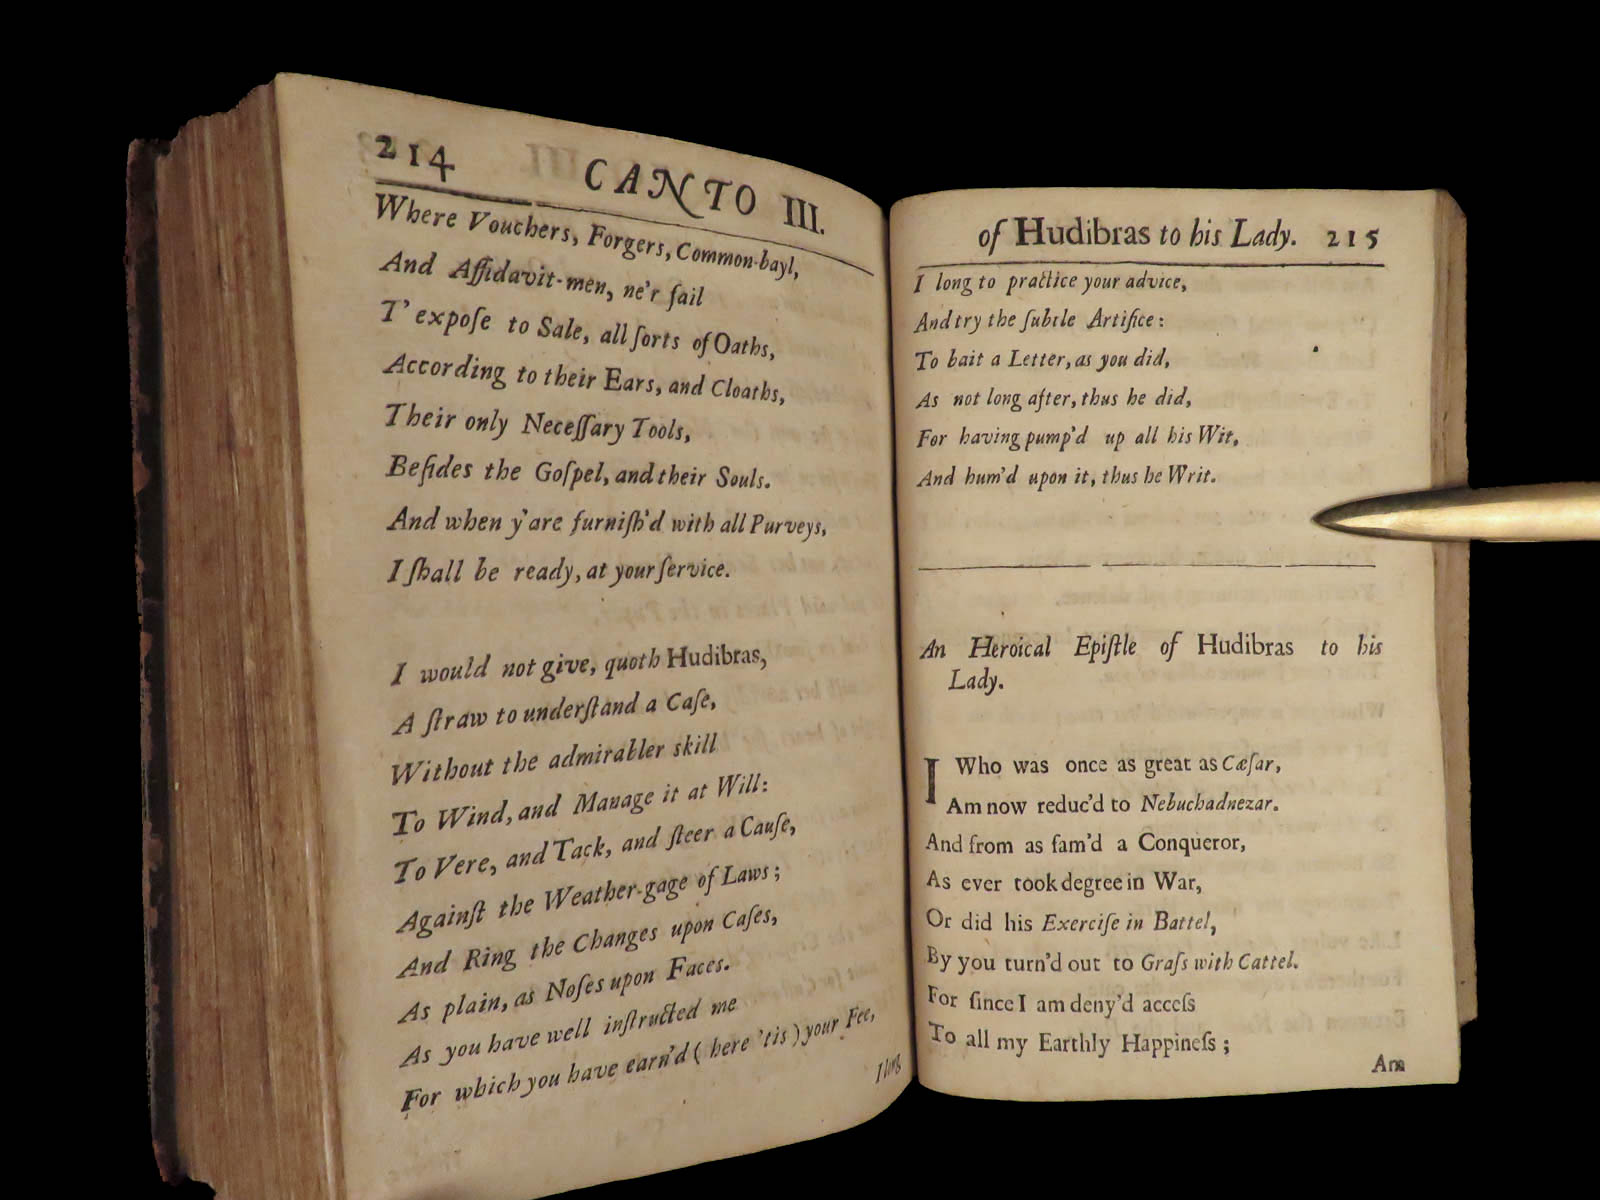 214 CANTO III.
Where Vouchers, Forgers, Common-bayl,
And Affidavit-men, ne'r fail
T' expoſe to Sale, all ſorts of Oaths,
According to their Ears, and Cloaths,
Their only Neceſſary Tools,
Beſides the Goſpel, and their Souls.
And when y'are furniſh'd with all Purveys,
I ſhall be ready, at your ſervice.
I would not give, quoth Hudibras,
A ſtraw to underſtand a Caſe,
Without the admirabler skill
To Wind, and Manage it at Will:
To Vere, and Tack, and ſteer a Cauſe,
Againſt the Weather-gage of Laws;
And Ring the Changes upon Caſes,
As plain, as Noſes upon Faces.
As you have well inſtructed me
For which you have earn'd (here 'tis) your Fee,
I long
of Hudibras to his Lady. 215
I long to practice your advice,
And try the ſubtle Artifice:
To bait a Letter, as you did,
As not long after, thus he did,
For having pump'd up all his Wit,
And hum'd upon it, thus he Writ.
An Heroical Epiſtle of Hudibras to his
Lady.
I Who was once as great as Cæſar,
Am now reduc'd to Nebuchadnezar.
And from as fam'd a Conqueror,
As ever took degree in War,
Or did his Exerciſe in Battel,
By you turn'd out to Graſs with Cattel.
For ſince I am deny'd acceſs
To all my Earthly Happineſs;
Am